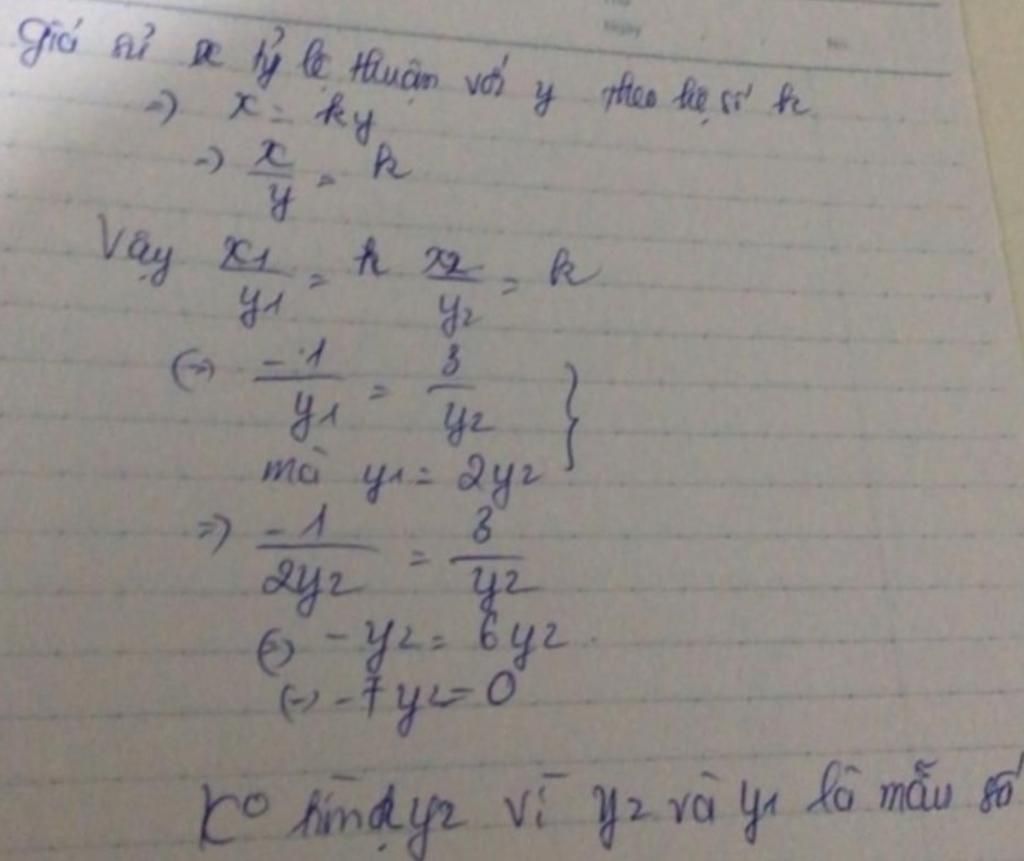 Giả sử x tỷ lệ thuận với y theo hệ số k
=) x = ky
=) x/y = k
Vậy x1/y1 = k x2/y2 = k
(=) -1/y1 = 3/y2 }
mà y1 = 2y2
=) -1/2y2 = 3/y2
(=) -y2 = 6y2
(=) -7y2 = 0
K° tìm đc y2 vì y2 và y1 là mẫu số